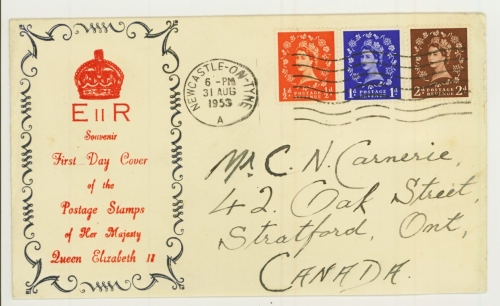 E II R
Souvenir
First Day Cover
of the
Postage Stamps
of Her Majesty
Queen Elizabeth II
NEWCASTLE-ON-TYNE
6 - PM
31 AUG
1953
A
½d POSTAGE REVENUE ½d
1d POSTAGE REVENUE 1d
2d POSTAGE REVENUE 2d
Mr. C. N. Carnerie,
42. Oak Street,
Stratford, Ont,
CANADA.